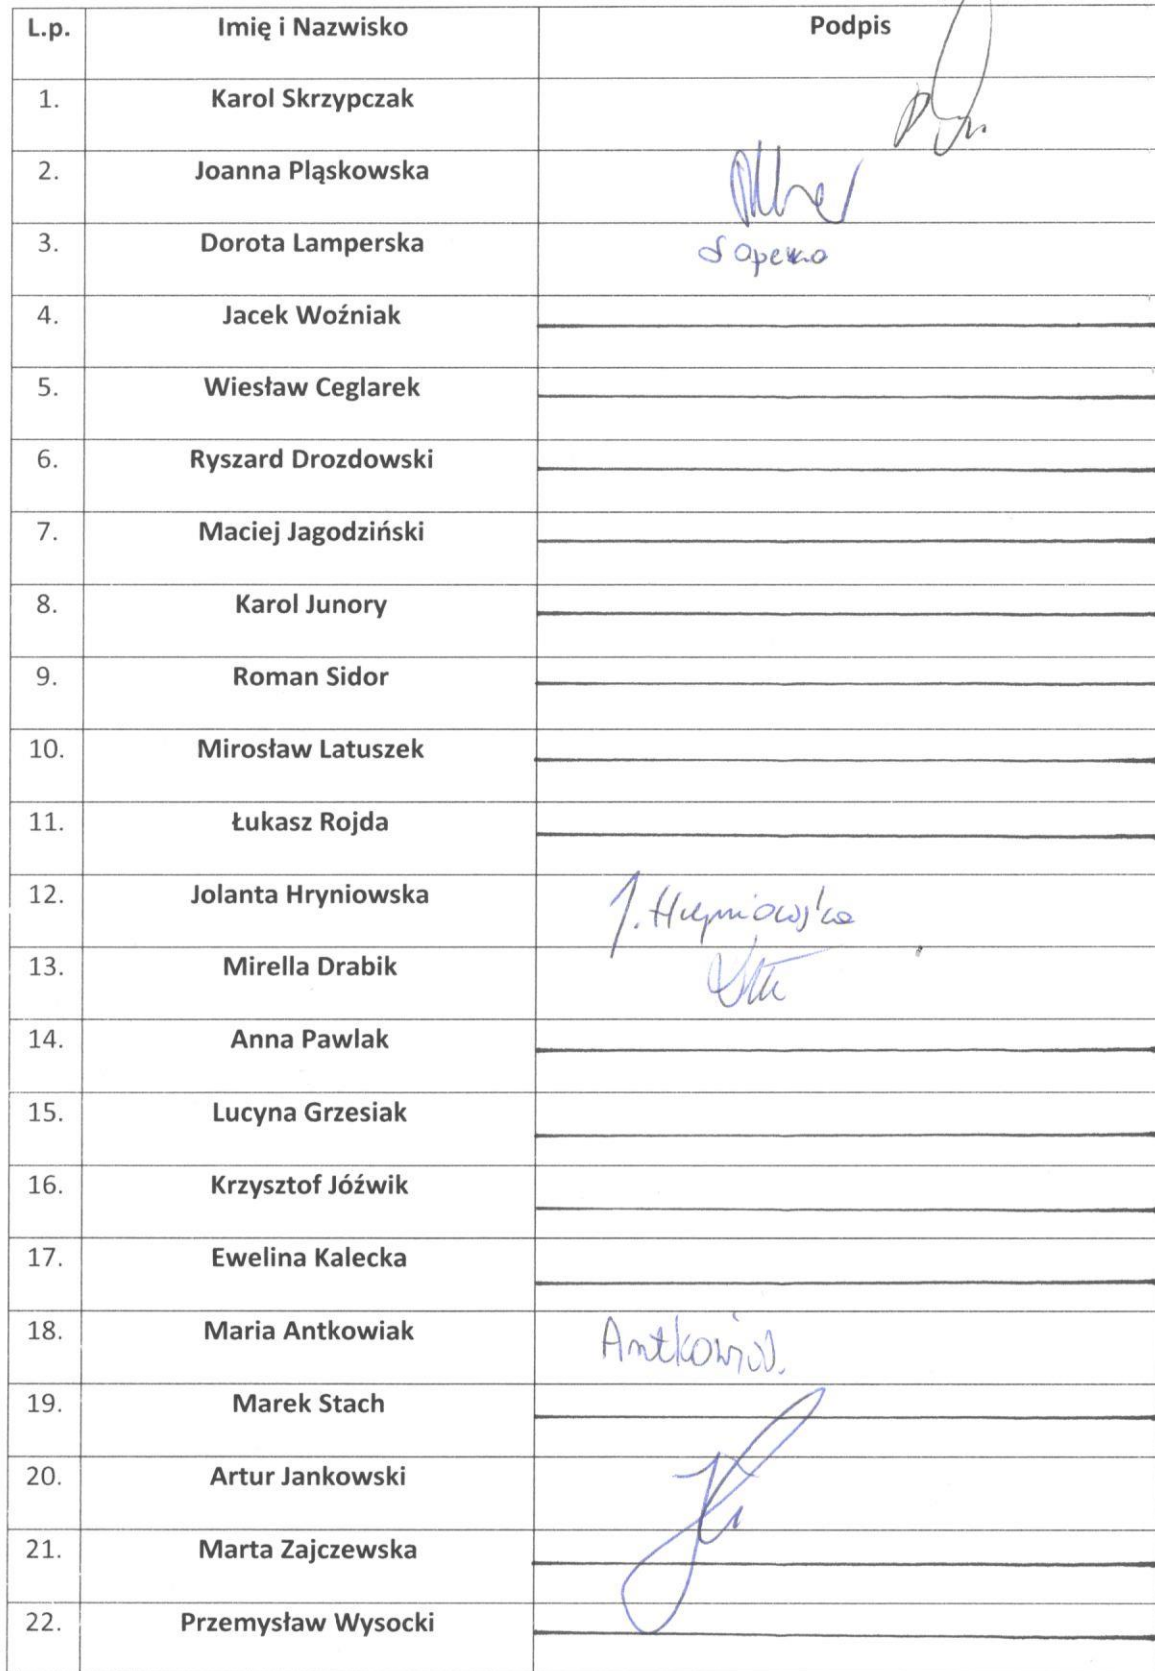 L.p. Imię i Nazwisko Podpis
1. Karol Skrzypczak
2. Joanna Pląskowska
3. Dorota Lamperska
4. Jacek Woźniak
5. Wiesław Ceglarek
6. Ryszard Drozdowski
7. Maciej Jagodziński
8. Karol Junory
9. Roman Sidor
10. Mirosław Latuszek
11. Łukasz Rojda
12. Jolanta Hryniowska J. Hryniowska
13. Mirella Drabik
14. Anna Pawlak
15. Lucyna Grzesiak
16. Krzysztof Jóźwik
17. Ewelina Kalecka
18. Maria Antkowiak Antkowiak
19. Marek Stach
20. Artur Jankowski
21. Marta Zajczewska
22. Przemysław Wysocki